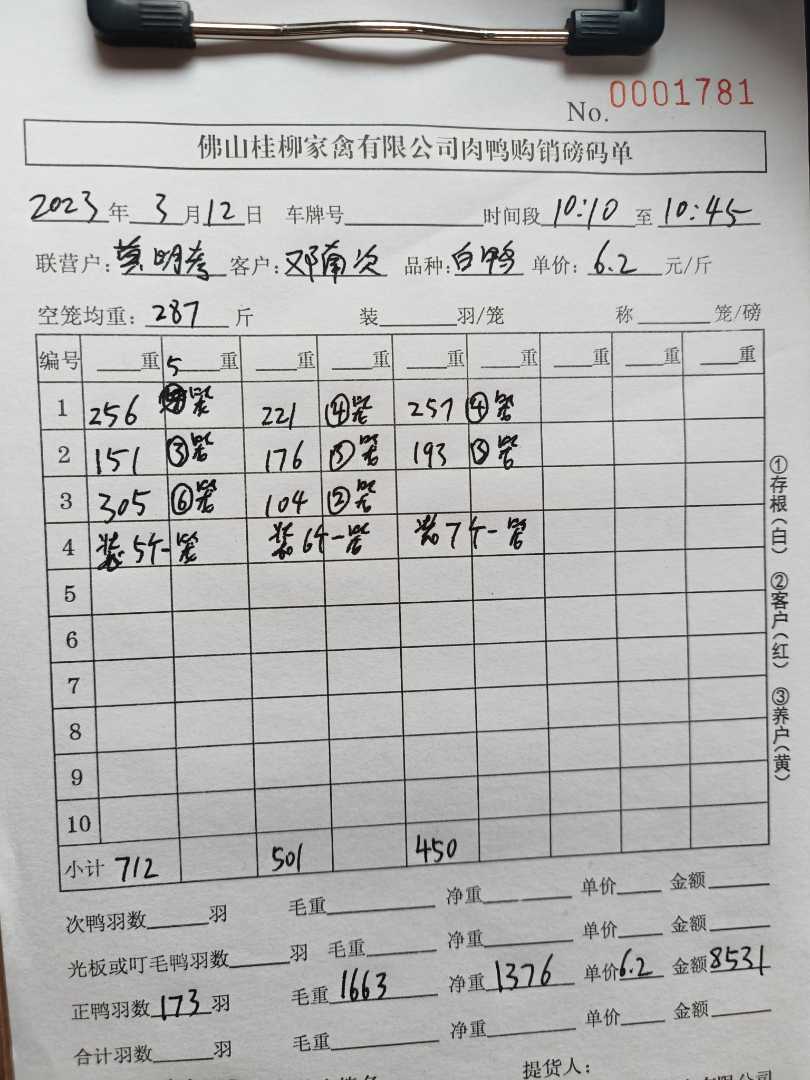 No. 0001781
佛山桂柳家禽有限公司肉鸭购销磅码单
2023年 3月12日 车牌号 时间段10:10至10:45
联营户: 明 客户:邓南次 品种:白鸭 单价:6.2元/斤
空笼均重:287斤 装 羽/笼 称 笼/磅
编号 重 5 重 重 重 重 重 重 重 重
1 256 笼 221 ④笼 257 ④笼
2 151 ③笼 176 ③笼 193 ③笼
3 305 ⑥笼 104 ②笼
4 装5个一笼 装6个一笼 装7个一笼
5
6
7
8
9
10
小计 712 501 450
次鸭羽数 羽 毛重 净重 单价 金额
光板或叮毛鸭羽数 羽 毛重 净重 单价 金额
正鸭羽数173羽 毛重1663 净重1376 单价6.2 金额8531
合计羽数 羽 毛重 净重 单价 金额
提货人:
①存根(白) ②客户(红) ③养户(黄)